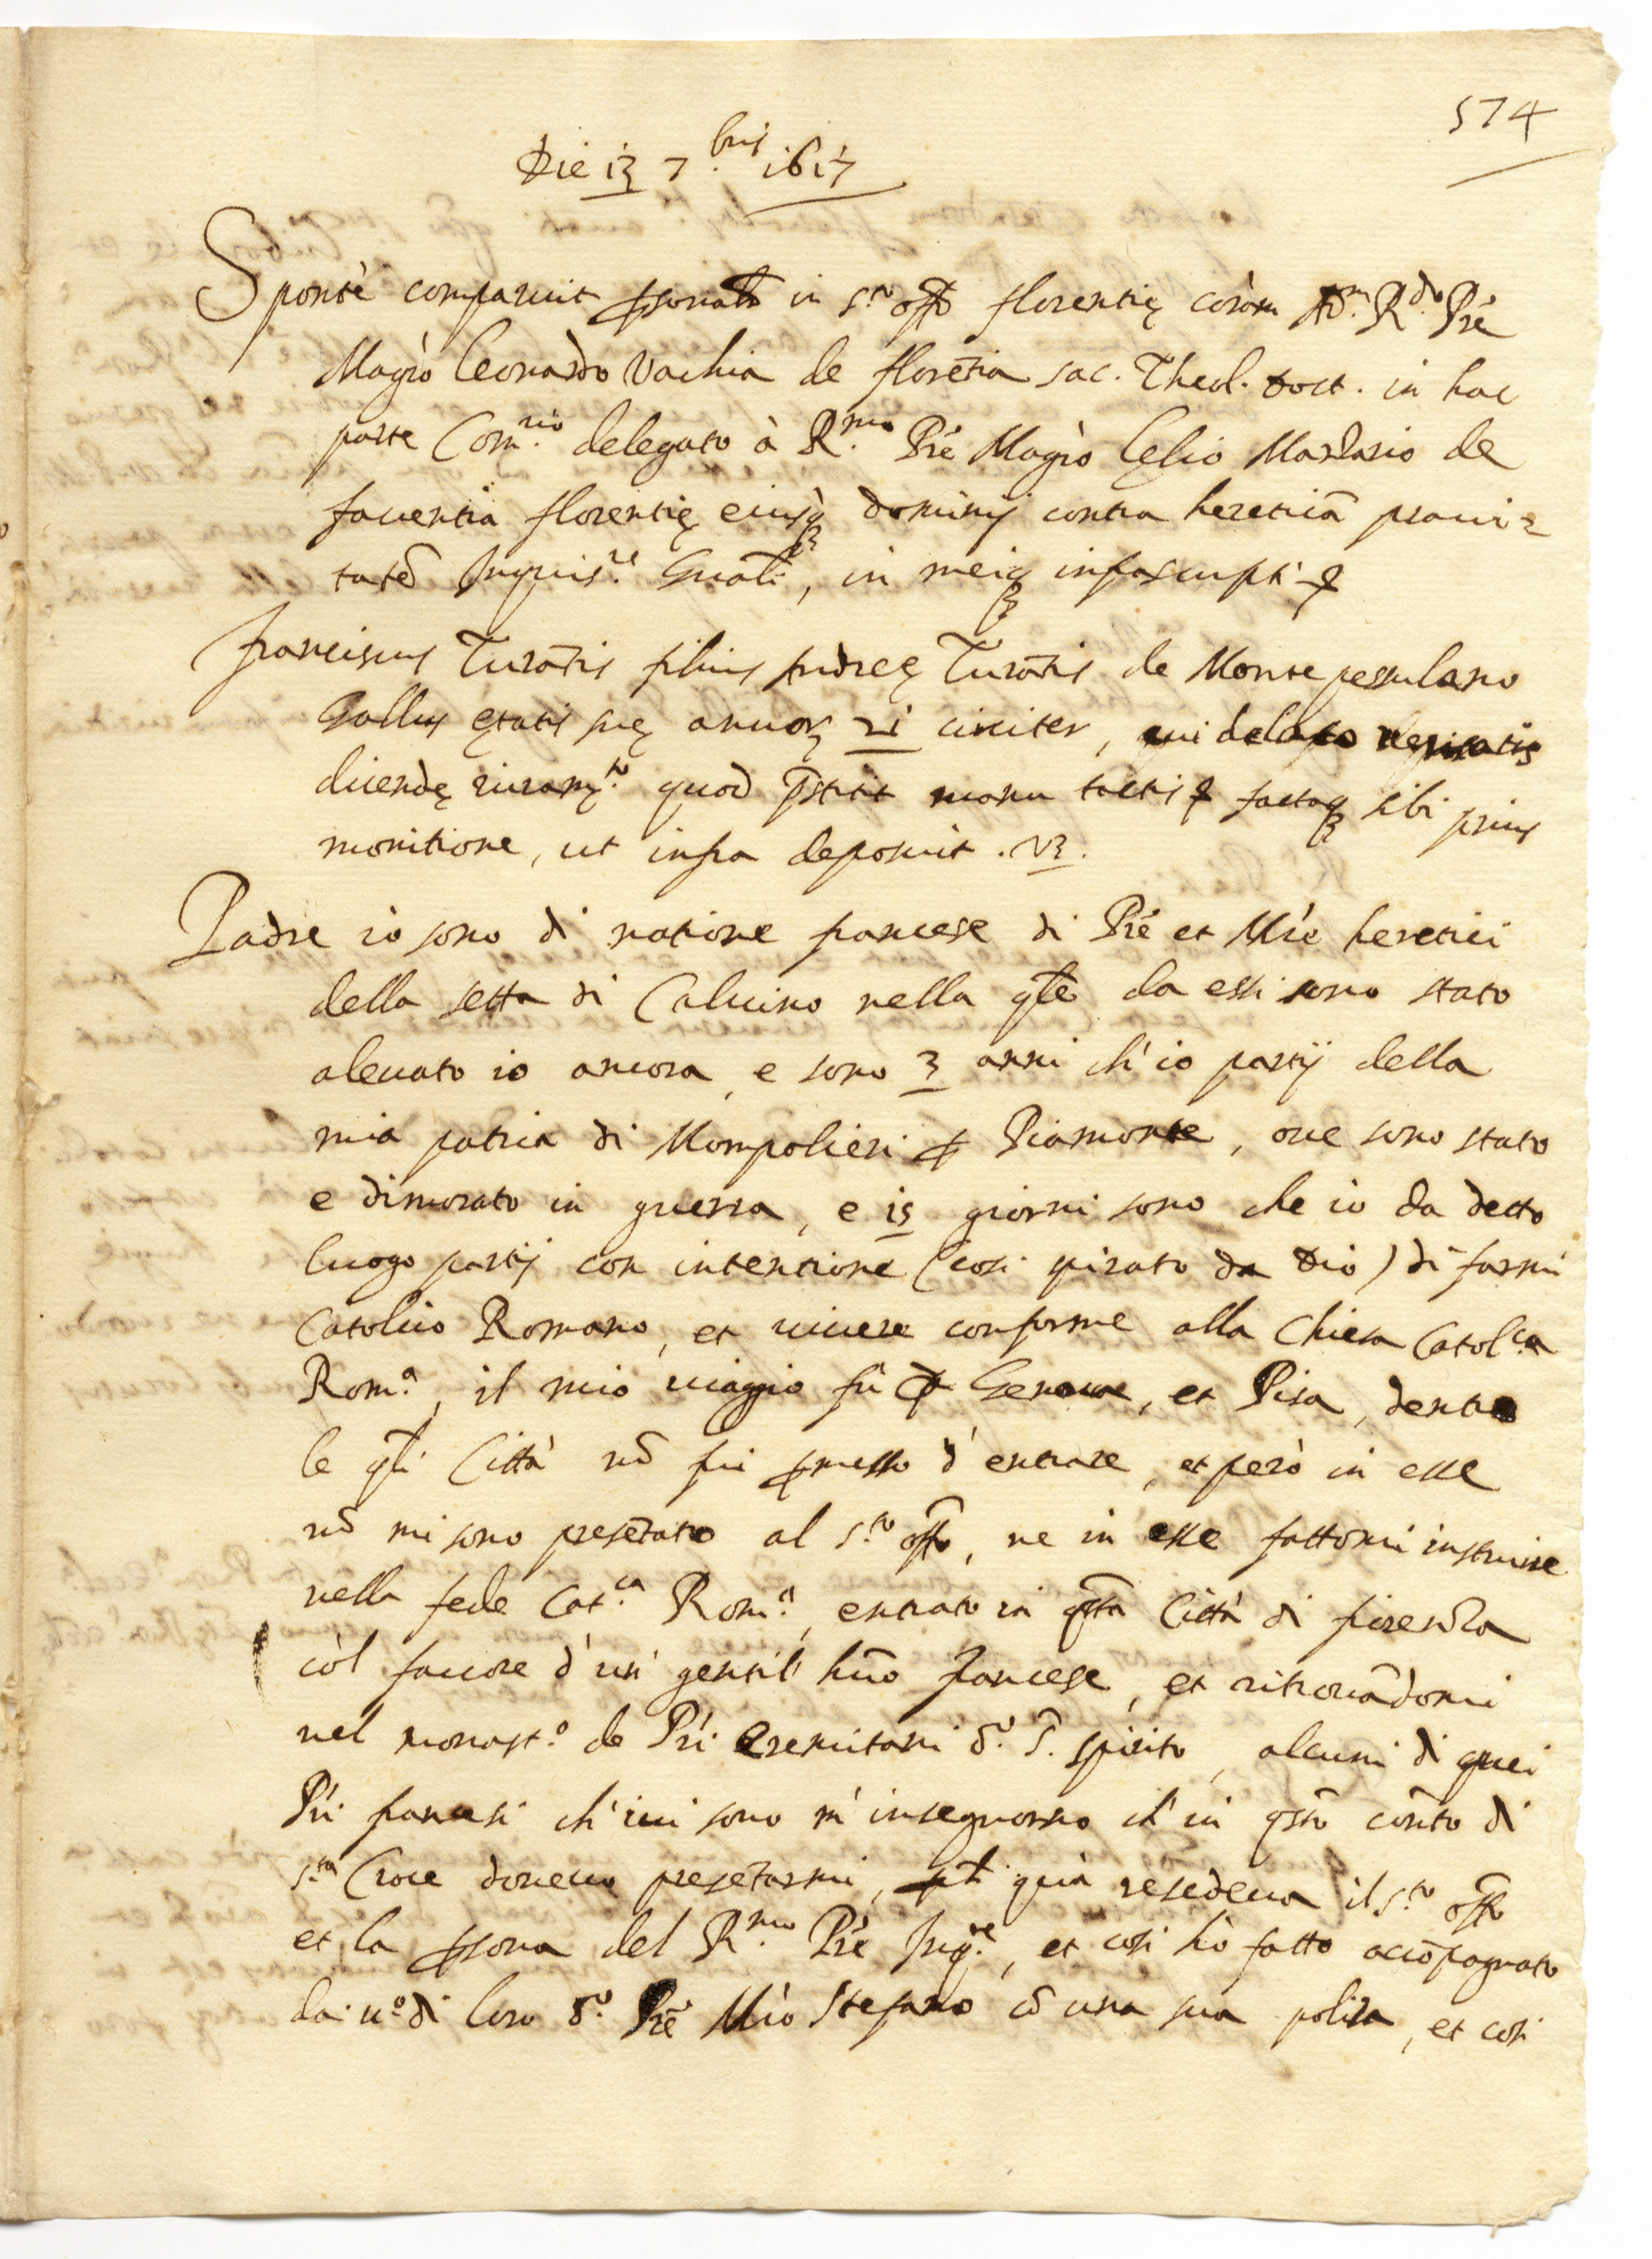 574
Die i3 7.bris i6i7
Spontè comparuit psonalr in s.to offo florentię coràm Ad.m R.do Prẽ
Magrò Leonardo Vachia de florẽtia sac. Theol. doct. in hac
parte Com.rio delegato à R.mo Prẽ Magrò Cęlio Mardario de
fauentia florentię eiusq dominij contra hereticã praui=
tatẽ Inquis.re Gnãli, in meiq infrascripti p
franciscus Turãtis filius Andreę Turãtis de Monte pessulano
Gallus ętatis suę annor 2i circiter, cui delato
dicendę iuram.to quod pstitit manu tactis p factaq sibi prius
monitione, ut infra deposuit. V3.
Padre io sono di natione francese di Prẽ et Mrẽ heretici
della setta di Caluino nella qlẽ da essi sono stato
aleuato io ancora, e sono 3 anni ch' io partij della
mia patria di Mompolieri p Piamonte, oue sono stato
e dimorato in guerra, e i5 giorni sono che io da detto
luogo partij con intentione (cosi spirato da Dio) di farmi
Catolico Romano, et uiuere conforme alla Chiesa Catol.ca
Rom.a, il mio uiaggio fù p Genoua, et Pisa, dentro
le qli Città nõ fui pmesso d' entrare, et però in esse
nõ mi sono presẽtato al s.to offo, ne in esse fattomi instruire
nella fede Cat.ca Rom.a, entrato in qsta Città di firenza
còl fauore d' un' gentil' huõ francese, et ritrouãdomi
nel monast.o de Pri Eremitani d.o S. spirito, alcuni di quei
Pri francesi ch' iui sono m' insegnorno ch' in qsto cõnto di
s.ta Croce doueuo presẽtarmi, quà resedeua il s.to offo
et la psona del R.mo Prẽ Inq.re, et cosi hò fatto accõpagnato
da u.o di loro d.o Prẽ Mrò Stefano cõ una sua poliza, et cosi